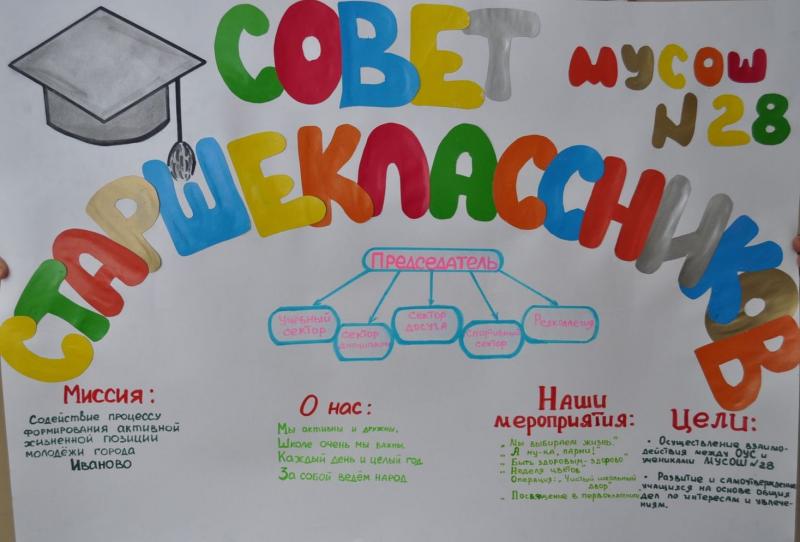 СОВЕТ
МУСОШ
N28
СТАРШЕКЛАССНИКОВ
Председатель
Учебный
сектор
Сектор
дисциплины
Сектор
досуга
Спортивный
сектор
Редколлегия
Миссия:
Содействие процессу
формирования активной
жизненной позиции
молодёжи города
Иваново
О нас:
Мы активны и дружны,
Школе очень мы важны.
Каждый день и целый год
За собой ведём народ
Наши
мероприятия:
„Мы выбираем жизнь"
„А ну-ка, парни!"
„Быть здоровым-здорово"
„Неделя цветов"
Операция: „Чистый школьный
двор"
„Посвящение в первоклассники
Цели:
• Осуществление взаимо-
действия между ОУС и
учениками МУСОШ N28
• Развитие и самоутверждение
учащихся на основе общих
дел по интересам и увлече-
ниям.